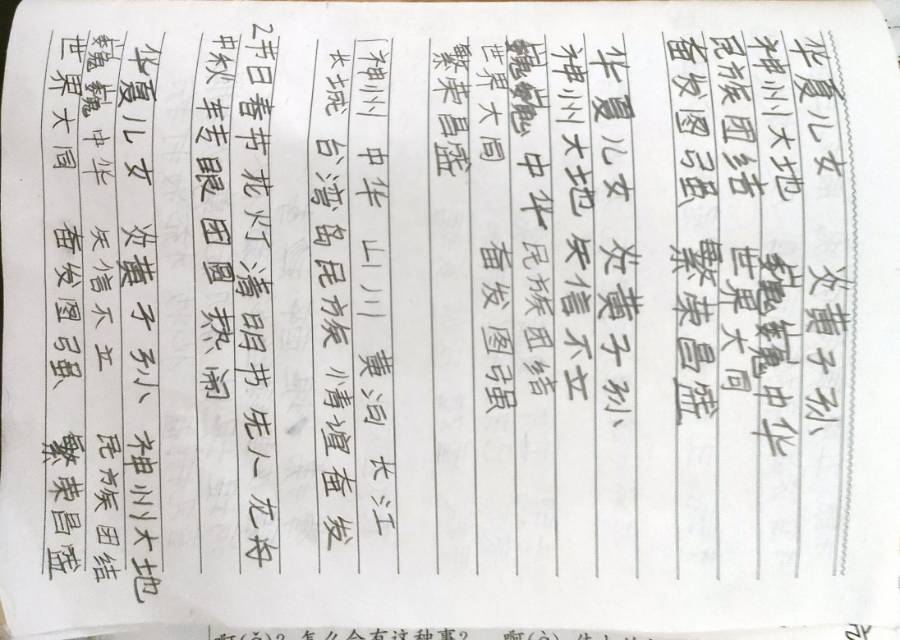 华夏儿女 炎黄子孙
神州大地 巍巍中华
民族团结 世界大同
奋发图强 繁荣昌盛
华夏儿女 炎黄子孙
神州大地 矢信不立
巍巍中华 民族团结
世界大同 奋发图强
繁荣昌盛
神州 中华 山川 黄河 长江
长城 台湾岛民族 情谊奋发
2节日春节花灯 清明节 先人龙舟
中秋 眼 团圆热闹
华夏儿女 炎黄子孙 神州大地
巍巍中华 矢信不立 民族团结
世界大同 奋发图强 繁荣昌盛
怎么会有这种事?